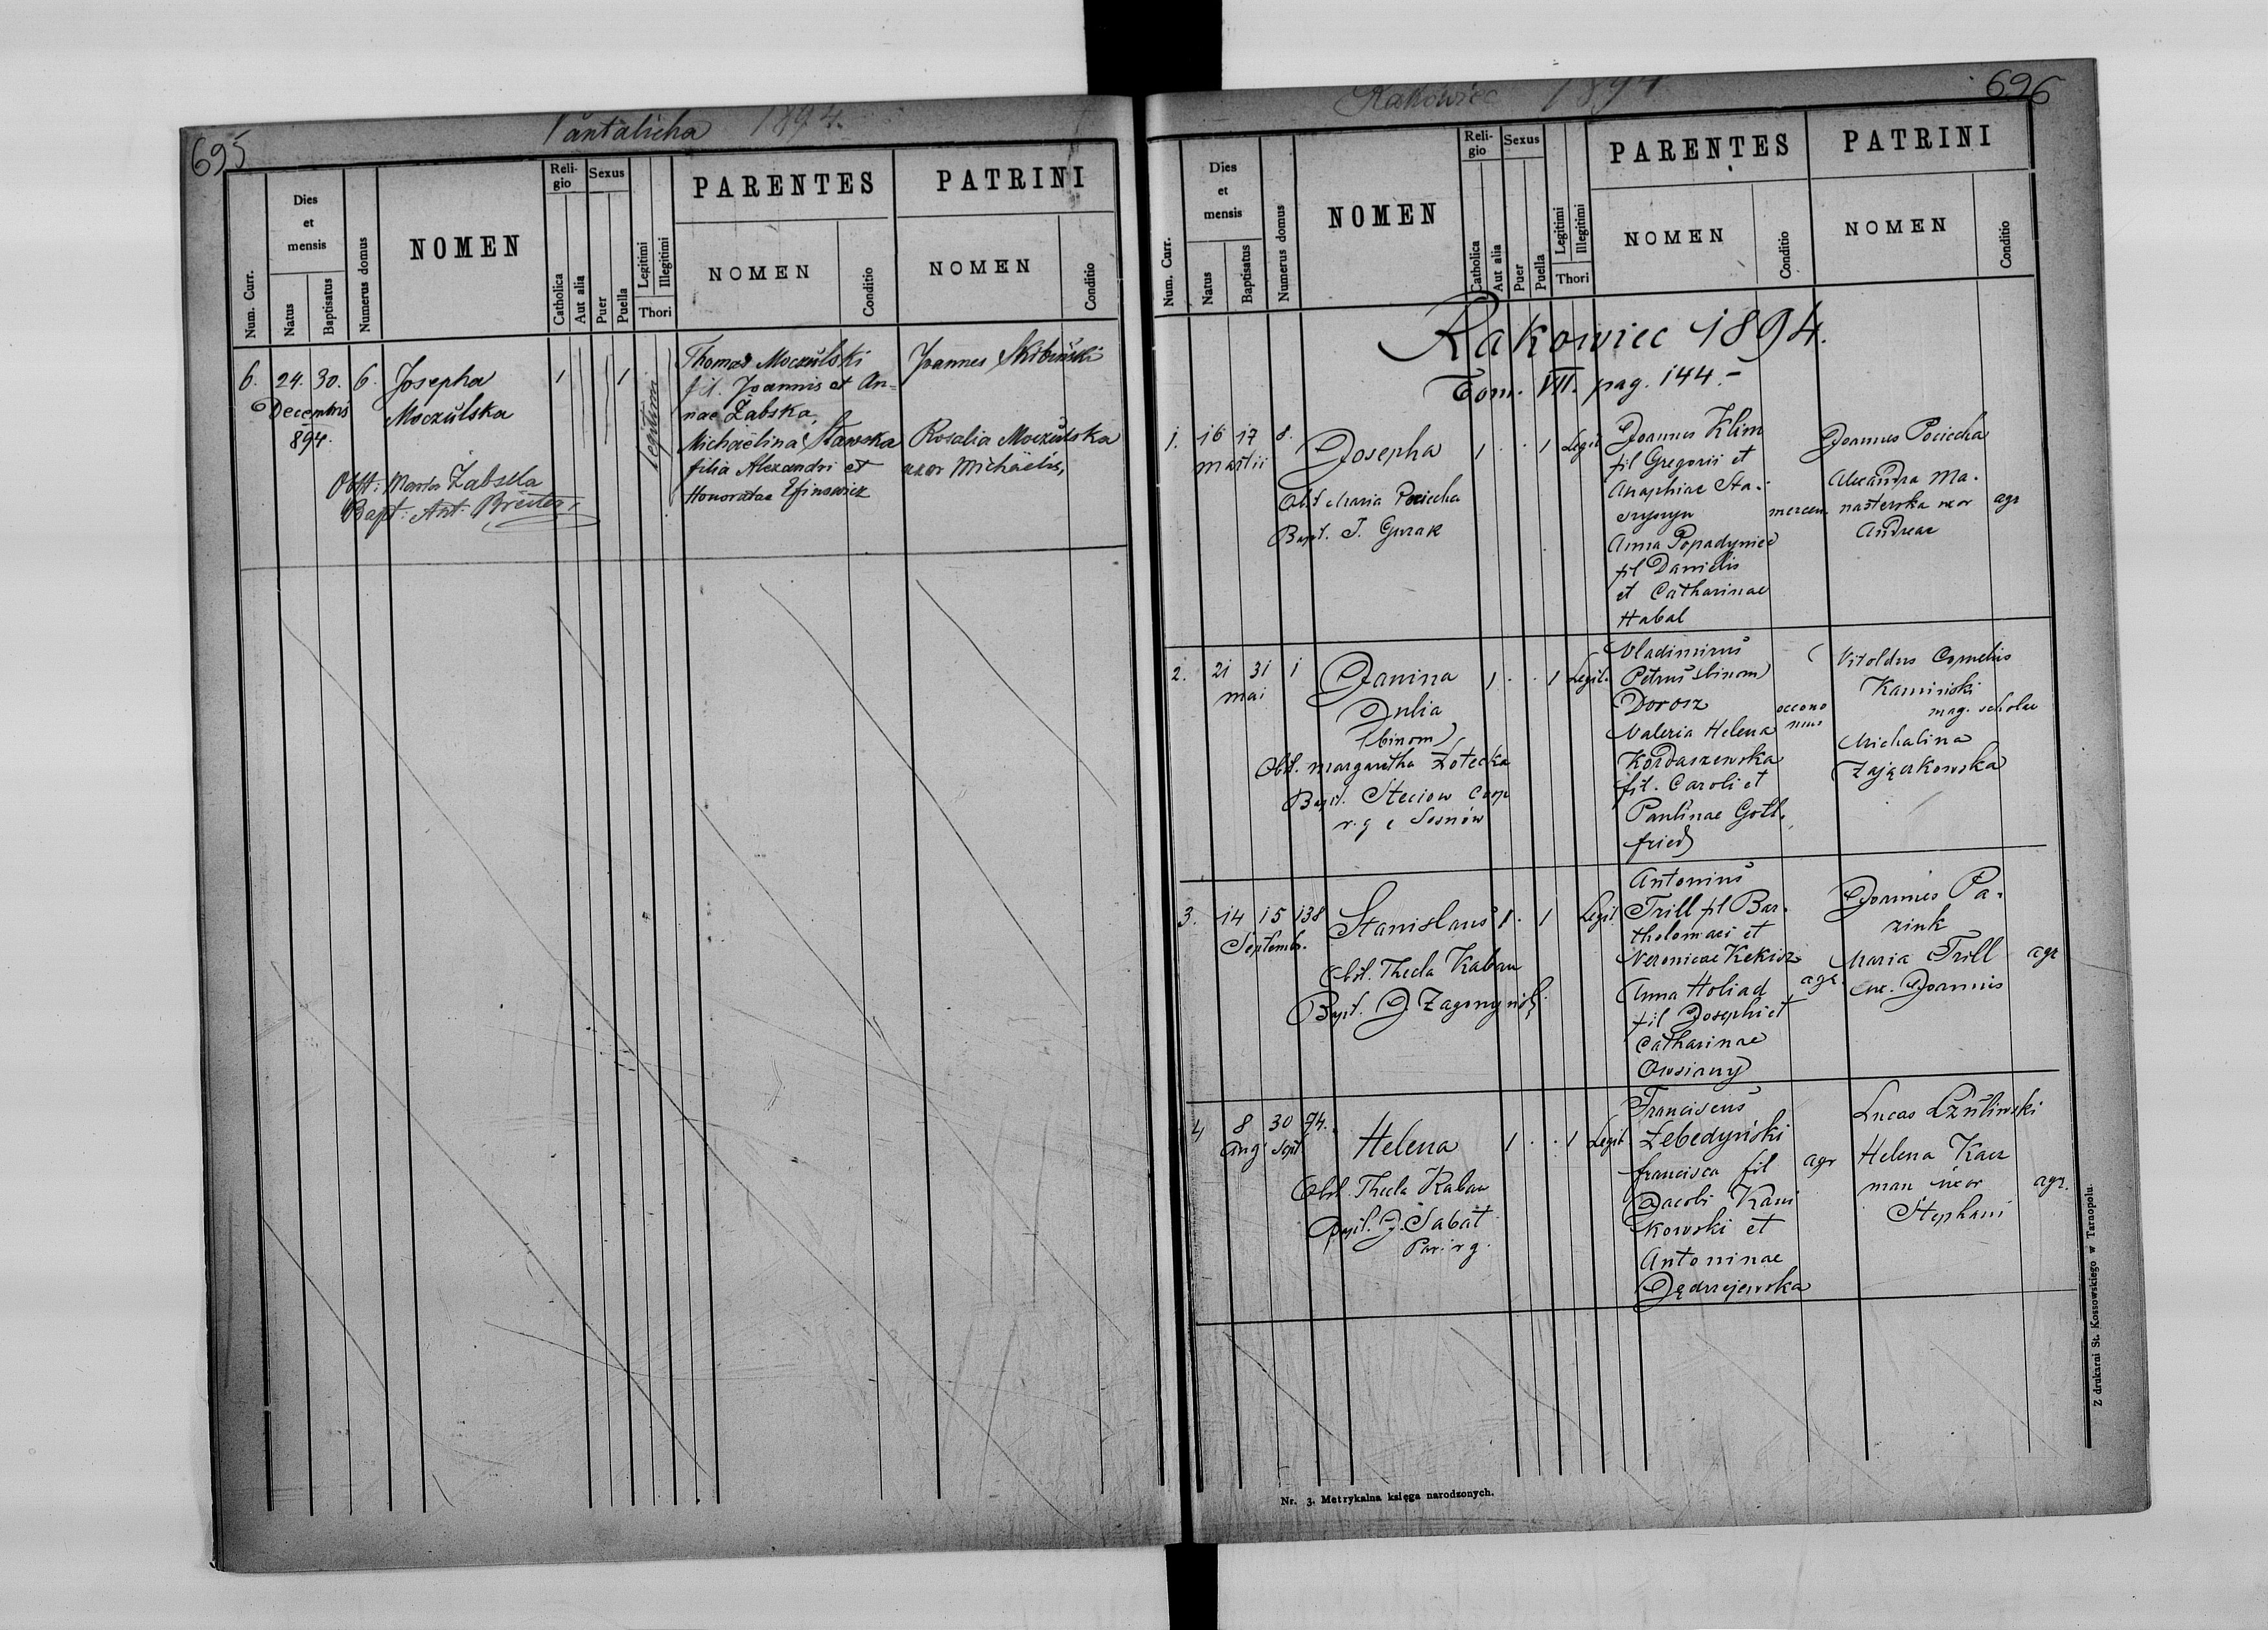 695
Pantalicha 1894.
Num. Curr.
Dies et mensis
Natus
Baptisatus
Numerus domus
NOMEN
Religio
Catholica
Aut alia
Sexus
Puer
Puella
Legitimi
Illegitimi
Thori
PARENTES
NOMEN
Conditio
PATRINI
NOMEN
Conditio
6.
24. 30.
Decembris
894.
6.
Josepha
Moczulska
Obst: Maria Żabska
Bapt: Ant.
1
1
Legitimi
Thomas Moczulski
fil. Joannis et An=
nae Żabska
Michaelina Stawska
filia Alexandri et
Honoratae
Joannes Skibiński
Rosalia Moczulska
uxor Michaëlis,
696
Rakowiec 1894
Num. Curr.
Dies et mensis
Natus
Baptisatus
Numerus domus
NOMEN
Religio
Catholica
Aut alia
Sexus
Puer
Puella
Legitimi
Illegitimi
Thori
PARENTES
NOMEN
Conditio
PATRINI
NOMEN
Conditio
Rakowiec 1894.
Tom. VII. pag. 144.-
1.
16 17
Martii
8.
Josepha
Obst Maria Pociecha
Bapt. J. Gurak
1 . . 1
Legit
Joannes Klim
fil Gregorii et
Anaphiae
Anna Popadyniec
fil Danielis
et Catharinae
Habal
mercen.
Joannes Pociecha
Alexandra Ma.
nasterska uxor
Andreae
agr
2.
21 31
Mai
1
Janina
Julia
(binom)
Obst. Margaretha Łotecka
Bapt. Steciow Coop
r. g e Sosnów
1 . . 1
Legit.
Vladimirus
Petrus (binom)
Dorosz
Valeria Helena
Kordaszewska
fil. Caroli et
Paulinae Gott.
fried
oecono
mus
Vitoldus Cornelius
Kamiński
mag. scholae
Michalina
Zajączkowska
3.
14 15
Septemb.
138
Stanislaus
Obst. Thecla Kaban
Bapt. J.
1 . 1
Legit
Antonius
Trill fil Bar.
tholomaei et
Veronicae Kekisz
Anna Holiad
fil Josephi et
Catharinae
Owsiany
agr.
Joannes Pa.
zink
Maria Trill
ux. Joannis
agr
4
8 30
Aug Sept.
94.
Helena
Obst. Thecla Kaban
Bapt. J. Sabat
Par. r g.
1 . . 1
Legit
Franciscus
Łebedyński
Francisca fil
Jacobi Kani
kowski et
Antoninae
Jędrzejewska
agr
Lucas
Helena Kacz
man uxor
Stephani
agr.
Nr. 3. Metrykalna księga narodzonych.
Z drukarni St. Kossowskiego w Tarnopolu.